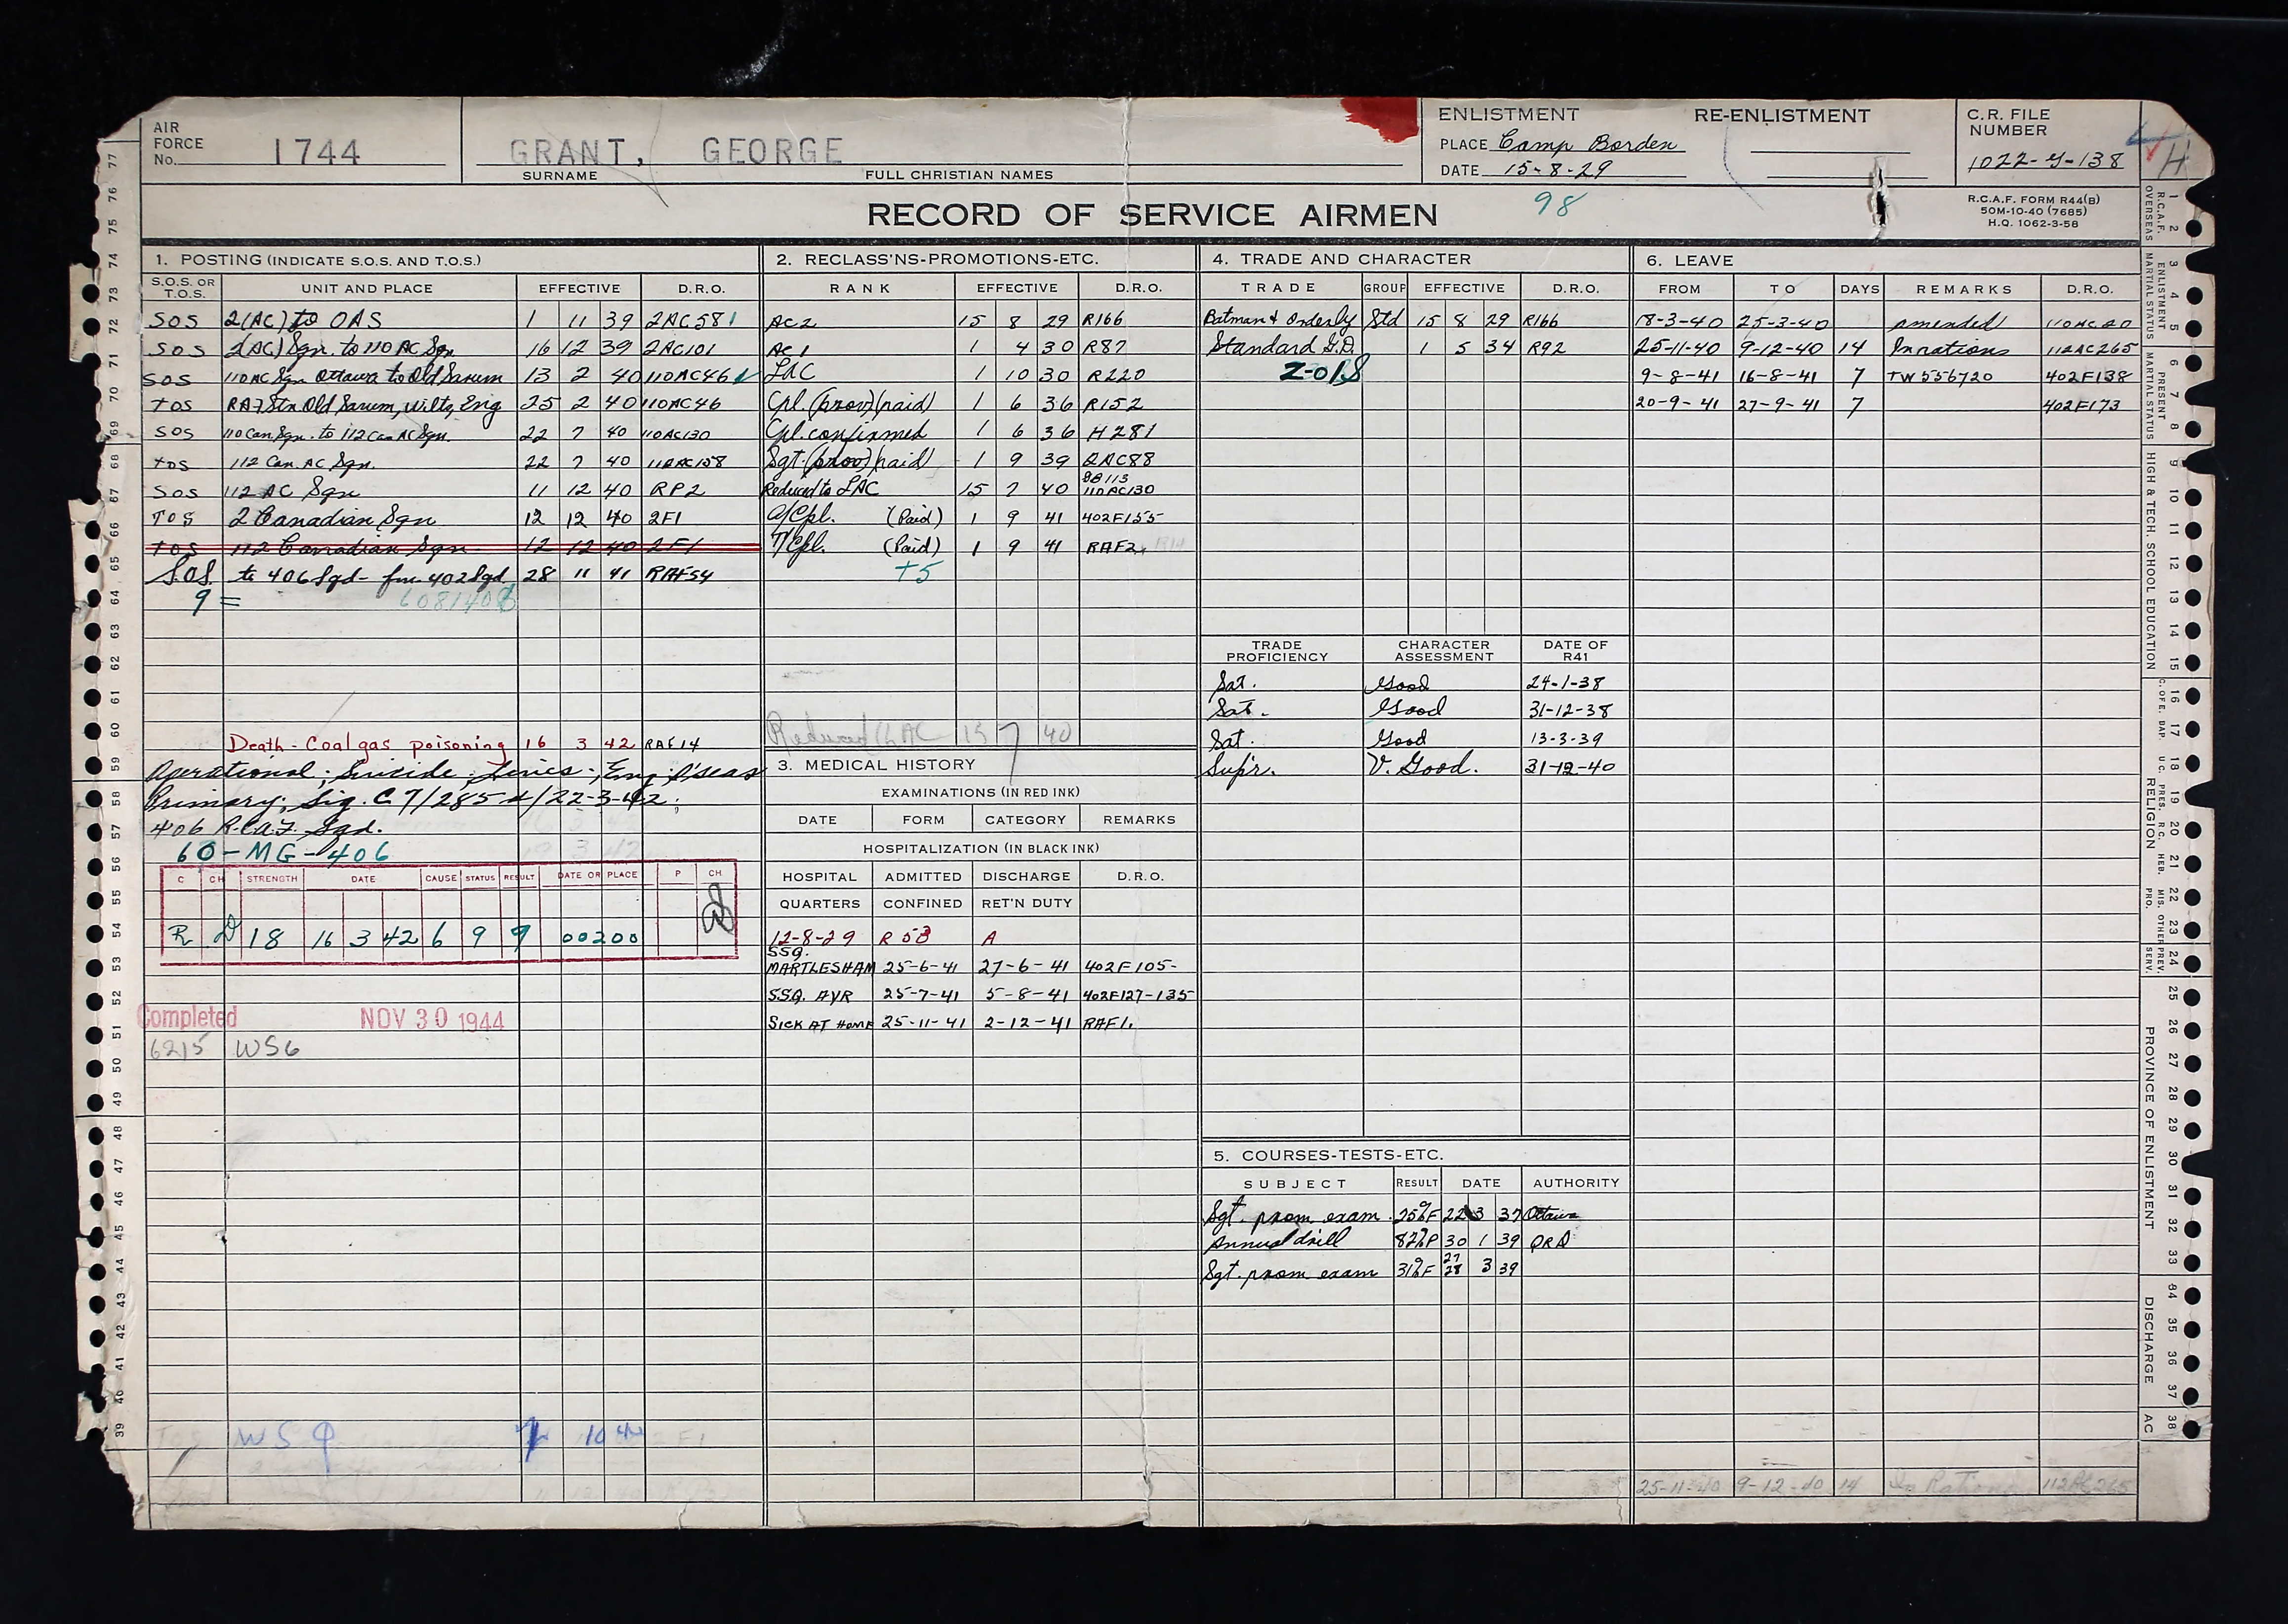 AIR FORCE No. 1744
GRANT, GEORGE
SURNAME FULL CHRISTIAN NAMES
ENLISTMENT RE-ENLISTMENT
PLACE Camp Borden
DATE 15-8-29
C.R. FILE NUMBER
1022-G-138
H
RECORD OF SERVICE AIRMEN
98
R.C.A.F. FORM R44(B)
50M-10-40 (7685)
H.Q. 1062-3-58
1. POSTING (INDICATE S.O.S. AND T.O.S.)
S.O.S. OR T.O.S. UNIT AND PLACE EFFECTIVE D.R.O.
SOS 2(AC) to OAS 1 11 39 2AC581
SOS 2(AC) Sqn. to 110 AC Sqn 16 12 39 2AC101
SOS 110 AC Sqn Ottawa to Old Sarum 13 2 40 110AC46
TOS RAF Stn Old Sarum, Wilts, Eng 25 2 40 110AC46
SOS 110 Can Sqn. to 112 Can AC Sqn. 22 7 40 110AC130
TOS 112 Can. AC Sqn. 22 7 40 112AC158
SOS 112 AC Sqn 11 12 40 RP2
TOS 2 Canadian Sqn 12 12 40 2F1
TOS 112 Canadian Sqn 12 12 40 2F1
S.O.S. to 406 Sqd - fm 402 Sqd. 28 11 41 RAF54
9 =
Death - Coal gas poisoning 16 3 42 RAF14
Operational; Suicide; Eng; O'seas
Primary; Sig. C7/285 d/22-3-42;
406 R.C.A.F. Sqd.
60-MG-406
C CH STRENGTH DATE CAUSE STATUS RESULT DATE OR PLACE P CH
R D 18 16 3 42 6 9 9 00200
Completed NOV 30 1944
6215 WS6
WS 10
2. RECLASS'NS-PROMOTIONS-ETC.
RANK EFFECTIVE D.R.O.
AC2 15 8 29 R166
AC1 1 4 30 R87
LAC 1 10 30 R220
Cpl. (prov) (paid) 1 6 36 R152
Cpl. confirmed 1 6 36 H281
Sgt. (prov) (paid) 1 9 39 2AC88
Reduced to LAC 15 7 40 110AC130
A/Cpl. (Paid) 1 9 41 402F155
T/Cpl. (Paid) 1 9 41 RAF2
+5
Reduced LAC 15 7 40
3. MEDICAL HISTORY
EXAMINATIONS (IN RED INK)
DATE FORM CATEGORY REMARKS
HOSPITALIZATION (IN BLACK INK)
HOSPITAL ADMITTED DISCHARGE D.R.O.
QUARTERS CONFINED RET'N DUTY
12-8-29 R53 A
SSQ.
MARTLESHAM 25-6-41 27-6-41 402F105-
S.S.Q. AYR 25-7-41 5-8-41 402F127-135
SICK AT HOME 25-11-41 2-12-41 RAF1.
4. TRADE AND CHARACTER
TRADE GROUP EFFECTIVE D.R.O.
Batman & Orderly Std 15 8 29 R166
Standard G.D. 1 5 34 R92
TRADE PROFICIENCY CHARACTER ASSESSMENT DATE OF R41
Sat. Good 24-1-38
Sat. Good 31-12-38
Sat. Good 13-3-39
Sup'r. V. Good. 31-12-40
5. COURSES-TESTS-ETC.
SUBJECT RESULT DATE AUTHORITY
Sgt. prom. exam. 25%F 22 3 37 Ottawa
Annual drill 82%P 30 1 39 ORD
Sgt. prom exam 31%F 27 28 3 39
6. LEAVE
FROM TO DAYS REMARKS D.R.O.
18-3-40 25-3-40 amended 110AC20
25-11-40 9-12-40 14 In rations 112AC265
9-8-41 16-8-41 7 TW556720 402F138
20-9-41 27-9-41 7 402F173
25-11-40 9-12-40 14 In Rations 112AC265
77 76 75 74 73 72 71 70 69 68 67 66 65 64 63 62 61 60 59 58 57 56 55 54 53 52 51 50 49 48 47 46 45 44 43 42 41 40 39
1 2 3 4 5 6 7 8 9 10 11 12 13 14 15 16 17 18 19 20 21 22 23 24 25 26 27 28 29 30 31 32 33 34 35 36 37 38
R.C.A.F. OVERSEAS
ENLISTMENT MARTIAL STATUS
PRESENT MARTIAL STATUS
HIGH & TECH. SCHOOL EDUCATION
C. OF E. BAP. U.C. PRES. R.C. HEB. MIS. PRO. OTHER
RELIGION
PREV. SERV.
PROVINCE OF ENLISTMENT
DISCHARGE
AC